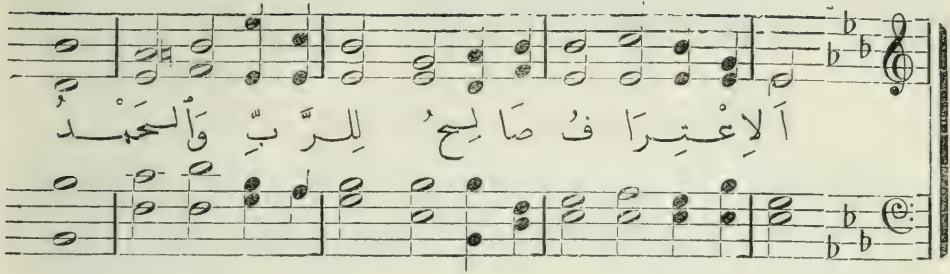 اَلاِعْتِرَا فُ صَا لِحُ لِلرَّ بِّ وَٱلحَمْدُ